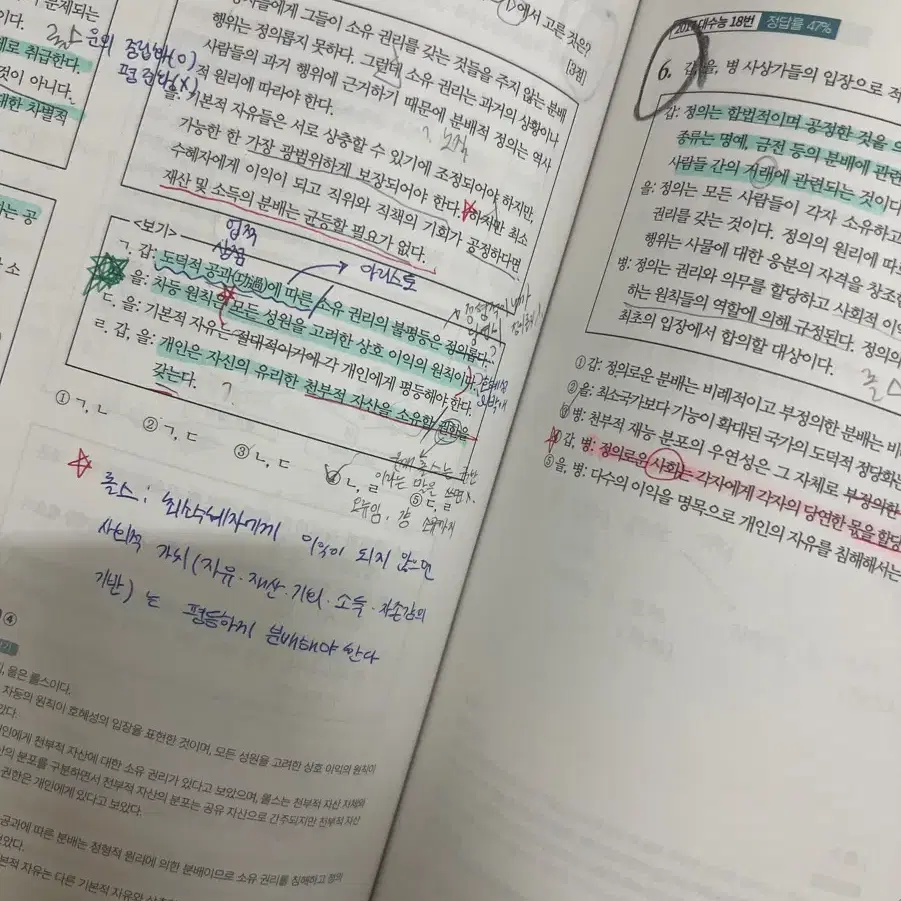 문제되는
이다.
운의 중립화(O)
평준화(X)
제로 취급한다.
것이 아니다.
대한 차별적
하는 공
에서 고른 것은?
[3점]
자들에게 그들이 소유 권리를 갖는 것들을 주지 않는 분배
행위는 정의롭지 못하다. 그런데 소유 권리는 과거의 상황이나
사람들의 과거 행위에 근거하기 때문에 분배적 정의는 역사
적 원리에 따라야 한다.
을: 기본적 자유들은 서로 상충할 수 있기에 조정되어야 하지만,
가능한 한 가장 광범위하게 보장되어야 한다. 하지만 최소
수혜자에게 이익이 되고 직위와 직책의 기회가 공정하다면
재산 및 소득의 분배는 균등할 필요가 없다.
<보기>
업적
아리스토
ㄱ. 갑: 도덕적 공과(功過)에 따른 소유 권리의 불평등은 정의롭다.
ㄴ. 을: 차등 원칙은 모든 성원을 고려한 상호 이익의 원칙이다.
ㄷ. 을: 기본적 자유는 절대적이기에 각 개인에게 평등해야 한다.
ㄹ. 갑, 을: 개인은 자신의 유리한 천부적 자산을 소유할 권한을
갖는다.
① ㄱ, ㄴ
② ㄱ, ㄷ
③ ㄴ, ㄷ
④ ㄴ, ㄹ
⑤ ㄷ, ㄹ
롤스: 최소수혜자에게 이익이 되지 않으면
사회적 가치(자유·재산·기회·소득·자존감의
기반)는 평등하게 분배해야 한다
④
, 을은 롤스이다.
차등의 원칙이 호혜성의 입장을 표현한 것이며, 모든 성원을 고려한 상호 이익의 원칙이
았다.
개인에게 천부적 자산에 대한 소유 권리가 있다고 보았으며, 롤스는 천부적 자산 자체와
산의 분포를 구분하면서 천부적 자산의 분포는 공유 자산으로 간주되지만 천부적 자산
권한은 개인에게 있다고 보았다.
공과에 따른 분배는 정형적 원리에 의한 분배이므로 소유 권리를 침해하고 정의
보았다.
본적 자유는 다른 기본적 자유와
대수능 18번 정답률 47%
6. 갑, 을, 병 사상가들의 입장으로 적
갑: 정의는 합법적이며 공정한 것을 의
종류는 명예, 금전 등의 분배에 관련
사람들 간의 거래에 관련되는 것이다
을: 정의는 모든 사람들이 각자 소유하고
권리를 갖는 것이다. 정의의 원리에 따
행위는 사물에 대한 응분의 자격을 창조한
병: 정의는 권리와 의무를 할당하고 사회적 이
하는 원칙들의 역할에 의해 규정된다. 정의의
최초의 입장에서 합의할 대상이다.
① 갑: 정의로운 분배는 비례적이고 부정의한 분배는 비
② 을: 최소국가보다 기능이 확대된 국가의 도덕적 정당화는
③ 병: 천부적 재능 분포의 우연성은 그 자체로 부정의한
④ 갑, 병: 정의로운 사회는 각자에게 각자의 당연한 몫을 할당
⑤ 을, 병: 다수의 이익을 명목으로 개인의 자유를 침해해서는